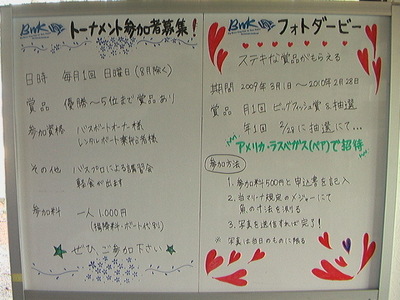 BWK トーナメント参加者募集!
日時 毎月1回 日曜日(8月除く)
賞品 優勝〜5位まで賞品あり
参加資格 バスボートオーナー様
レンタルボート乗船者様
その他 バスプロによる講習会
軽食が出ます
参加料 一人 1,000円
(保険料・ボート代別)
ぜひ ご参加下さい
BWK フォトダービー
ステキな賞品がもらえる
期間 2009年3月1日〜2010年2月28日
賞品 月1回 ビッグフィッシュ賞を抽選
年1回 2/28に抽選にて…
アメリカ・ラスベガス(ペア)で招待
参加方法
1. 参加料500円と申込書を記入
2. 当マリーナ規定のメジャーにて
魚の寸法を測る
3. 写真を送信すれば完了!
※ 写真は当日のものに限る